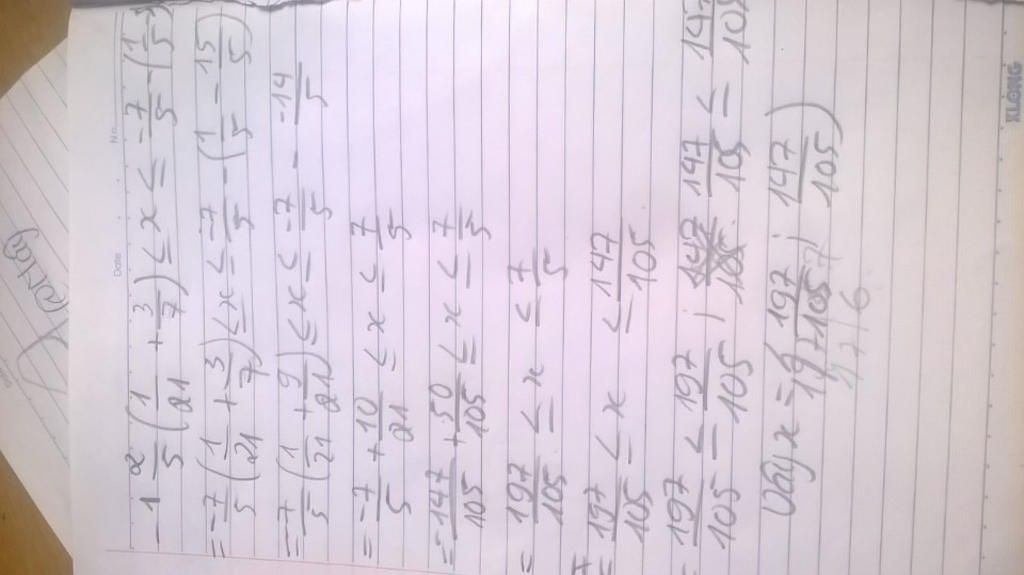 No.
Date
-1 2/5 (1/21 + 3/7) ≤ x ≤ -7/5 - (1/5 - 3
= -7/5 (1/21 + 3/7) ≤ x ≤ -7/5 - (1/5 - 15/5)
= -7/5 (1/21 + 9/21) ≤ x ≤ -7/5 - -14/5
= -7/5 + 10/21 ≤ x ≤ 7/5
= -147/105 + 50/105 ≤ x ≤ 7/5
= 197/105 ≤ x ≤ 7/5
= 197/105 ≤ x ≤ 147/105
= 197/105 ≤ 197/105 ; 147/105 ≤ 147/105
Vậy x = (197/105 ; 147/105)
KLONG